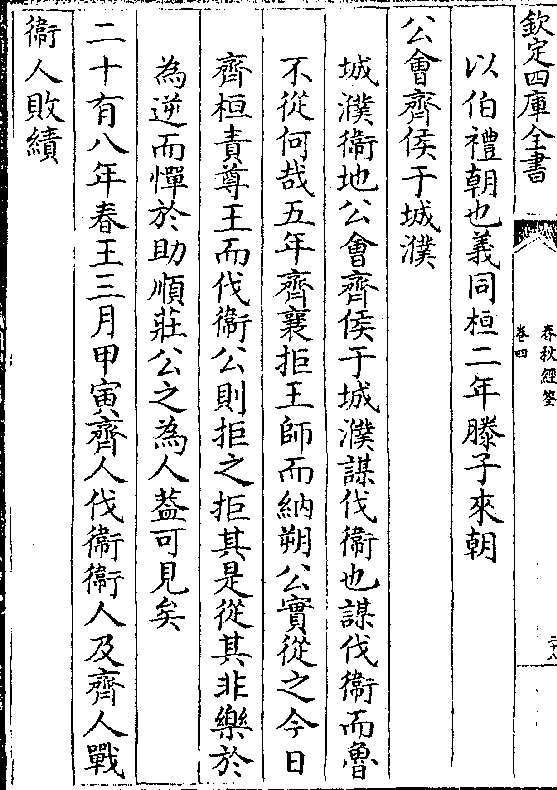 欽定四庫全書
春秋經筌
卷四
以伯禮朝也義同桓二年滕子來朝
公會齊侯于城濮
城濮衛地公會齊侯于城濮謀伐衛也謀伐衛而魯
不從何哉五年齊襄拒王師而納朔公實從之今日
齊桓責尊王而伐衛公則拒之拒其是從其非樂於
為逆而憚於助順莊公之為人葢可見矣
二十有八年春王三月甲寅齊人伐衛衛人及齊人戰
衛人敗績